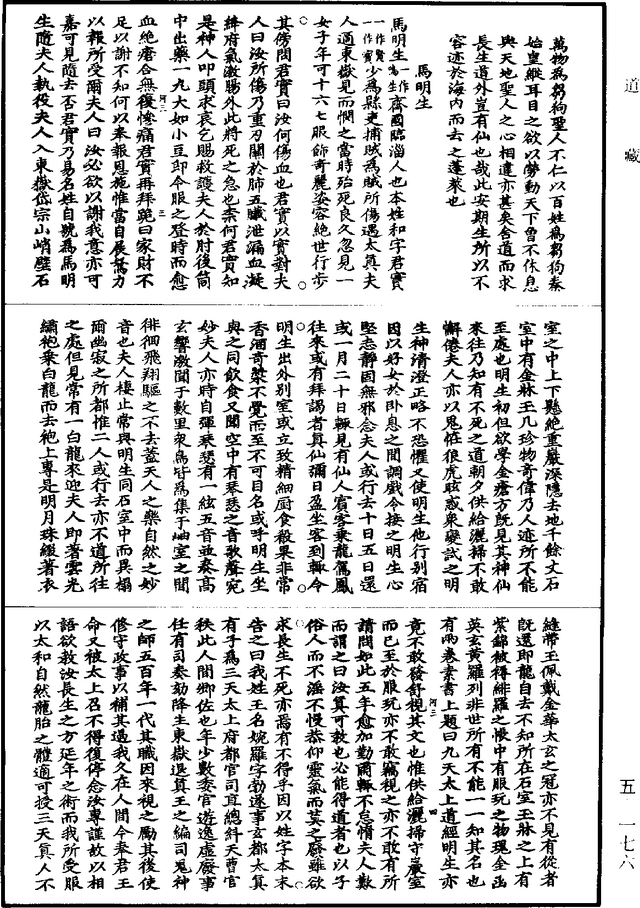 道藏
萬物為芻狗聖人不仁以百姓為芻狗秦
始皇縱耳目之欲以勞動天下曾不休息
與天地聖人之心相違亦甚矣舍道而求
長生道外豈有仙也哉此安期生所以不
容迹於海內而去之蓬萊也
馬明生
馬明生一作為生齊國臨淄人也本姓和字君實
一作賢一作寶少為縣吏捕賊為賊所傷遇太真夫
人適東嶽見而憫之當時殆死良久忽見一
女子年可十六七服飾奇麗姿容絕世行步
其傍問君實曰汝何傷血也君實以實對夫
人曰汝所傷乃重刃關於肺五臟泄漏血凝
絳府氣激腸外此將死之急也柰何君實知
是神人叩頭求哀乞賜救護夫人於肘後筒
中出藥一丸大如小豆即令服之登時而愈
河三 三
血絕瘡合無復慘痛君實再拜跪曰家財不
足以謝不知何以奉報恩施惟當自展駑力
以報所受爾夫人曰汝必欲以謝我意亦可
嘉可見隨去否君實乃易名姓自號為馬明
生隨夫人執役夫人入東嶽岱宗山峭壁石
室之中上下懸絕重巖深隱去地千餘丈石
室中有金牀玉几珍物奇偉乃人迹所不能
至處也明生初但欲學金瘡方既見其神仙
來往乃知有不死之道朝夕供給灑掃不敢
懈倦夫人亦以鬼怪狼虎眩惑衆變試之明
生神清澄正略不恐懼又使明生他行別宿
因以好女於臥息之間調戲令接之明生心
堅志靜固無邪念夫人或行去十日五日還
或一月二十日輒見有仙人賓客乘龍駕鳳
往來或有拜謁者真仙彌日盈坐客到輒令
明生出外別室或立致精細厨食殽果非常
香酒奇漿不覺而至不可目名或呼明生坐
與之同飲食又聞空中有琴瑟之音歌聲宛
妙夫人亦時自彈琴瑟有一絃五音並奏高
玄響激聞于數里衆鳥皆為集于岫室之間
徘徊飛翔驅之不去蓋天人之樂自然之妙
音也夫人棲止常與明生同石室中而異榻
爾幽寂之所都惟二人或行去亦不道所往
之處但見常有一白龍來迎夫人即著雲光
繡袍乘白龍而去袍上專是明月珠綴著衣
縫帶玉佩戴金華太玄之冠亦不見有從者
既還即龍自去不知所在石室玉牀之上有
紫錦被褥緋羅之帳中有服玩之物瑰金函
英玄黃羅列非世所有不能一一知其名也
有兩卷素書上題曰九天太上道經明生亦
河三 四
竟不敢發舒視其文也惟供給灑掃守巖室
而已至於服玩亦不敢竊視之亦不敢有所
請問如此五年愈加勤肅輒不怠惰夫人歎
而謂之曰汝真可教也必能得道者也以子
俗人而不淫不慢恭仰靈氣而莫之廢雖欲
求長生不死亦焉有不得乎因以姓字本末
告之曰我姓王名婉羅字勃遂事玄都太真
有子為三天太上府都官司直總糾天曹官
秩比人間卿佐也年少數委官遊逸虛廢事
任有司奏劾降生東嶽退真王之編司鬼神
之師五百年一代其職因來視之勵其後使
修守政事以補其過我久在人間今奉君王
命又被太上召不得復停念汝專謹故以相
語欲教汝長生之方延年之術而我所受服
以太和自然龍胎之體適可授三天真人不
五一七六